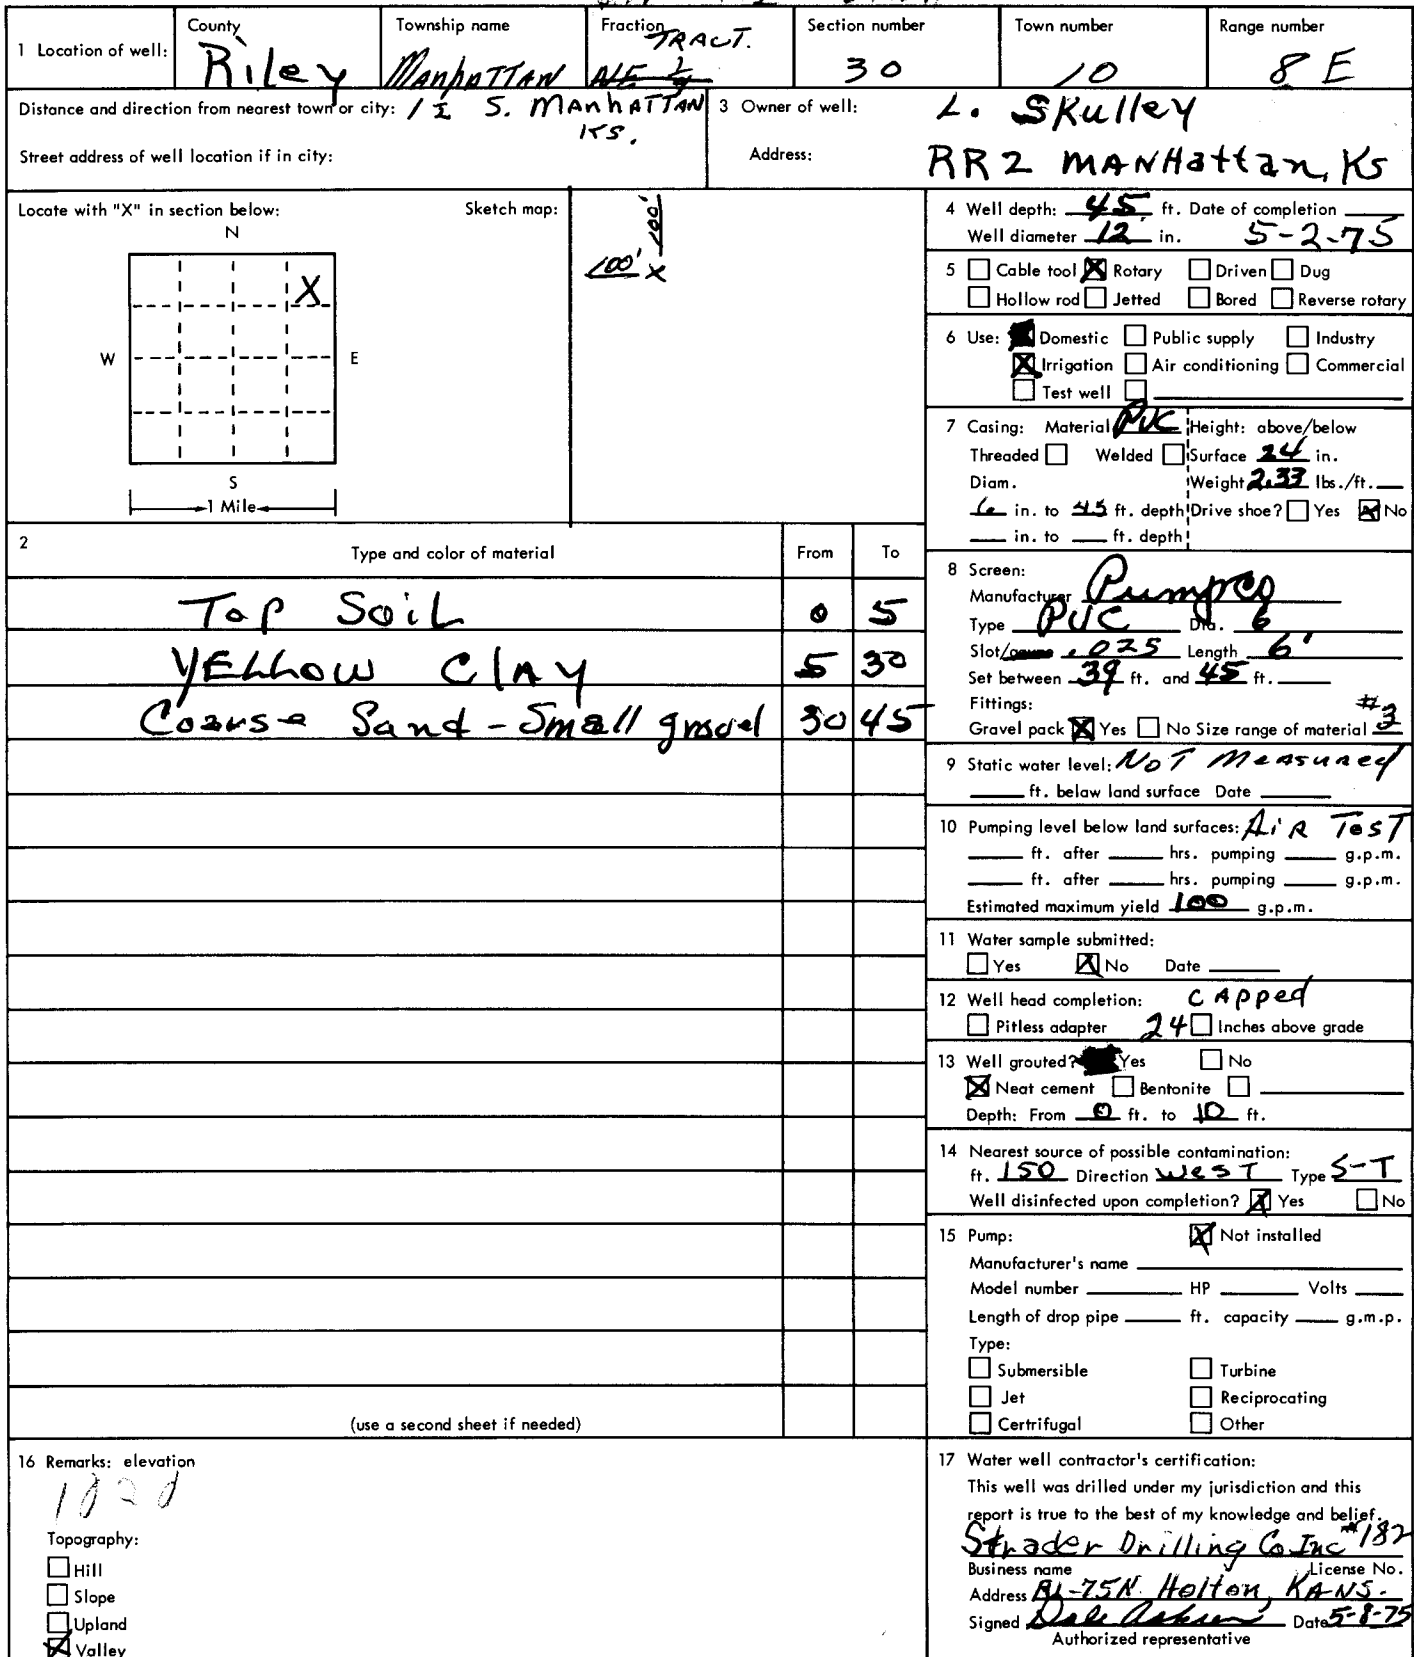 1 Location of well: County Riley Township name Manhattan Fraction TRACT. NE 1/4 Section number 30 Town number 10 Range number 8 E
Distance and direction from nearest town or city: S. Manhattan Ks.
Street address of well location if in city:
3 Owner of well: L. Skulley
Address: RR2 Manhattan, Ks
Locate with "X" in section below:
N
W E
X
S
1 Mile
Sketch map:
100'
100' X
2 Type and color of material From To
Top Soil 0 5
Yellow Clay 5 30
Coarse Sand - Small gravel 30 45
(use a second sheet if needed)
4 Well depth: 45 ft. Date of completion
Well diameter 12 in. 5-2-75
5 Cable tool X Rotary Driven Dug
Hollow rod Jetted Bored Reverse rotary
6 Use: Domestic Public supply Industry
X Irrigation Air conditioning Commercial
Test well
7 Casing: Material PVC Height: above/below
Threaded Welded Surface 24 in.
Diam. Weight 2.33 lbs./ft.
6 in. to 45 ft. depth Drive shoe? Yes X No
in. to ft. depth
8 Screen:
Manufacturer Pumpco
Type PVC Dia. 6
Slot/gauze .025 Length 6'
Set between 39 ft. and 45 ft.
Fittings: #3
Gravel pack X Yes No Size range of material
9 Static water level: Not Measured
ft. below land surface Date
10 Pumping level below land surfaces: Air Test
ft. after hrs. pumping g.p.m.
ft. after hrs. pumping g.p.m.
Estimated maximum yield 100 g.p.m.
11 Water sample submitted:
Yes X No Date
12 Well head completion: Capped
Pitless adapter 24 Inches above grade
13 Well grouted? Yes No
X Neat cement Bentonite
Depth: From 0 ft. to 10 ft.
14 Nearest source of possible contamination:
ft. 150 Direction West Type S-T
Well disinfected upon completion? X Yes No
15 Pump: X Not installed
Manufacturer's name
Model number HP Volts
Length of drop pipe ft. capacity g.m.p.
Type:
Submersible Turbine
Jet Reciprocating
Certrifugal Other
16 Remarks: elevation
Topography:
Hill
Slope
Upland
X Valley
17 Water well contractor's certification:
This well was drilled under my jurisdiction and this
report is true to the best of my knowledge and belief.
Strader Drilling Co Inc #182
Business name License No.
Address 75N Holton, KANS.
Signed Dale Date 5-8-75
Authorized representative